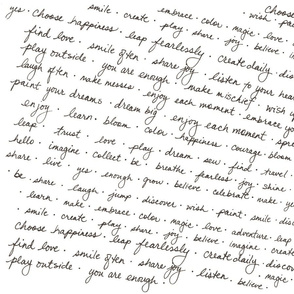 smile. create. embrace. color. Choose
yes. Choose happiness. play. share. magic. love.
find love. leap fearlessly. joy. believe.
play outside. smile often. create daily.
laugh often. you are enough. share joy. listen to your
paint your dreams. make messes. enjoy each moment. make mischief. wish
enjoy. dream big. embrace
leap. learn. bloom. color. enjoy each moment.
hello. trust. love. play. happiness. courage. bloom
share. imagine. collect. be. dream. sew. find. travel.
live. yes. enough. breathe. fearless. joy. shine
be. share. laugh. grow. believe. celebrate. make.
learn. make. jump. discover. wish. paint. smile.
smile. create. embrace. color. magic. love. adventure. leap
Choose happiness. play. share. joy. believe. imagine. create
find love. leap fearlessly. create daily.
play outside. smile often. share joy. listen. believe.
you are enough.